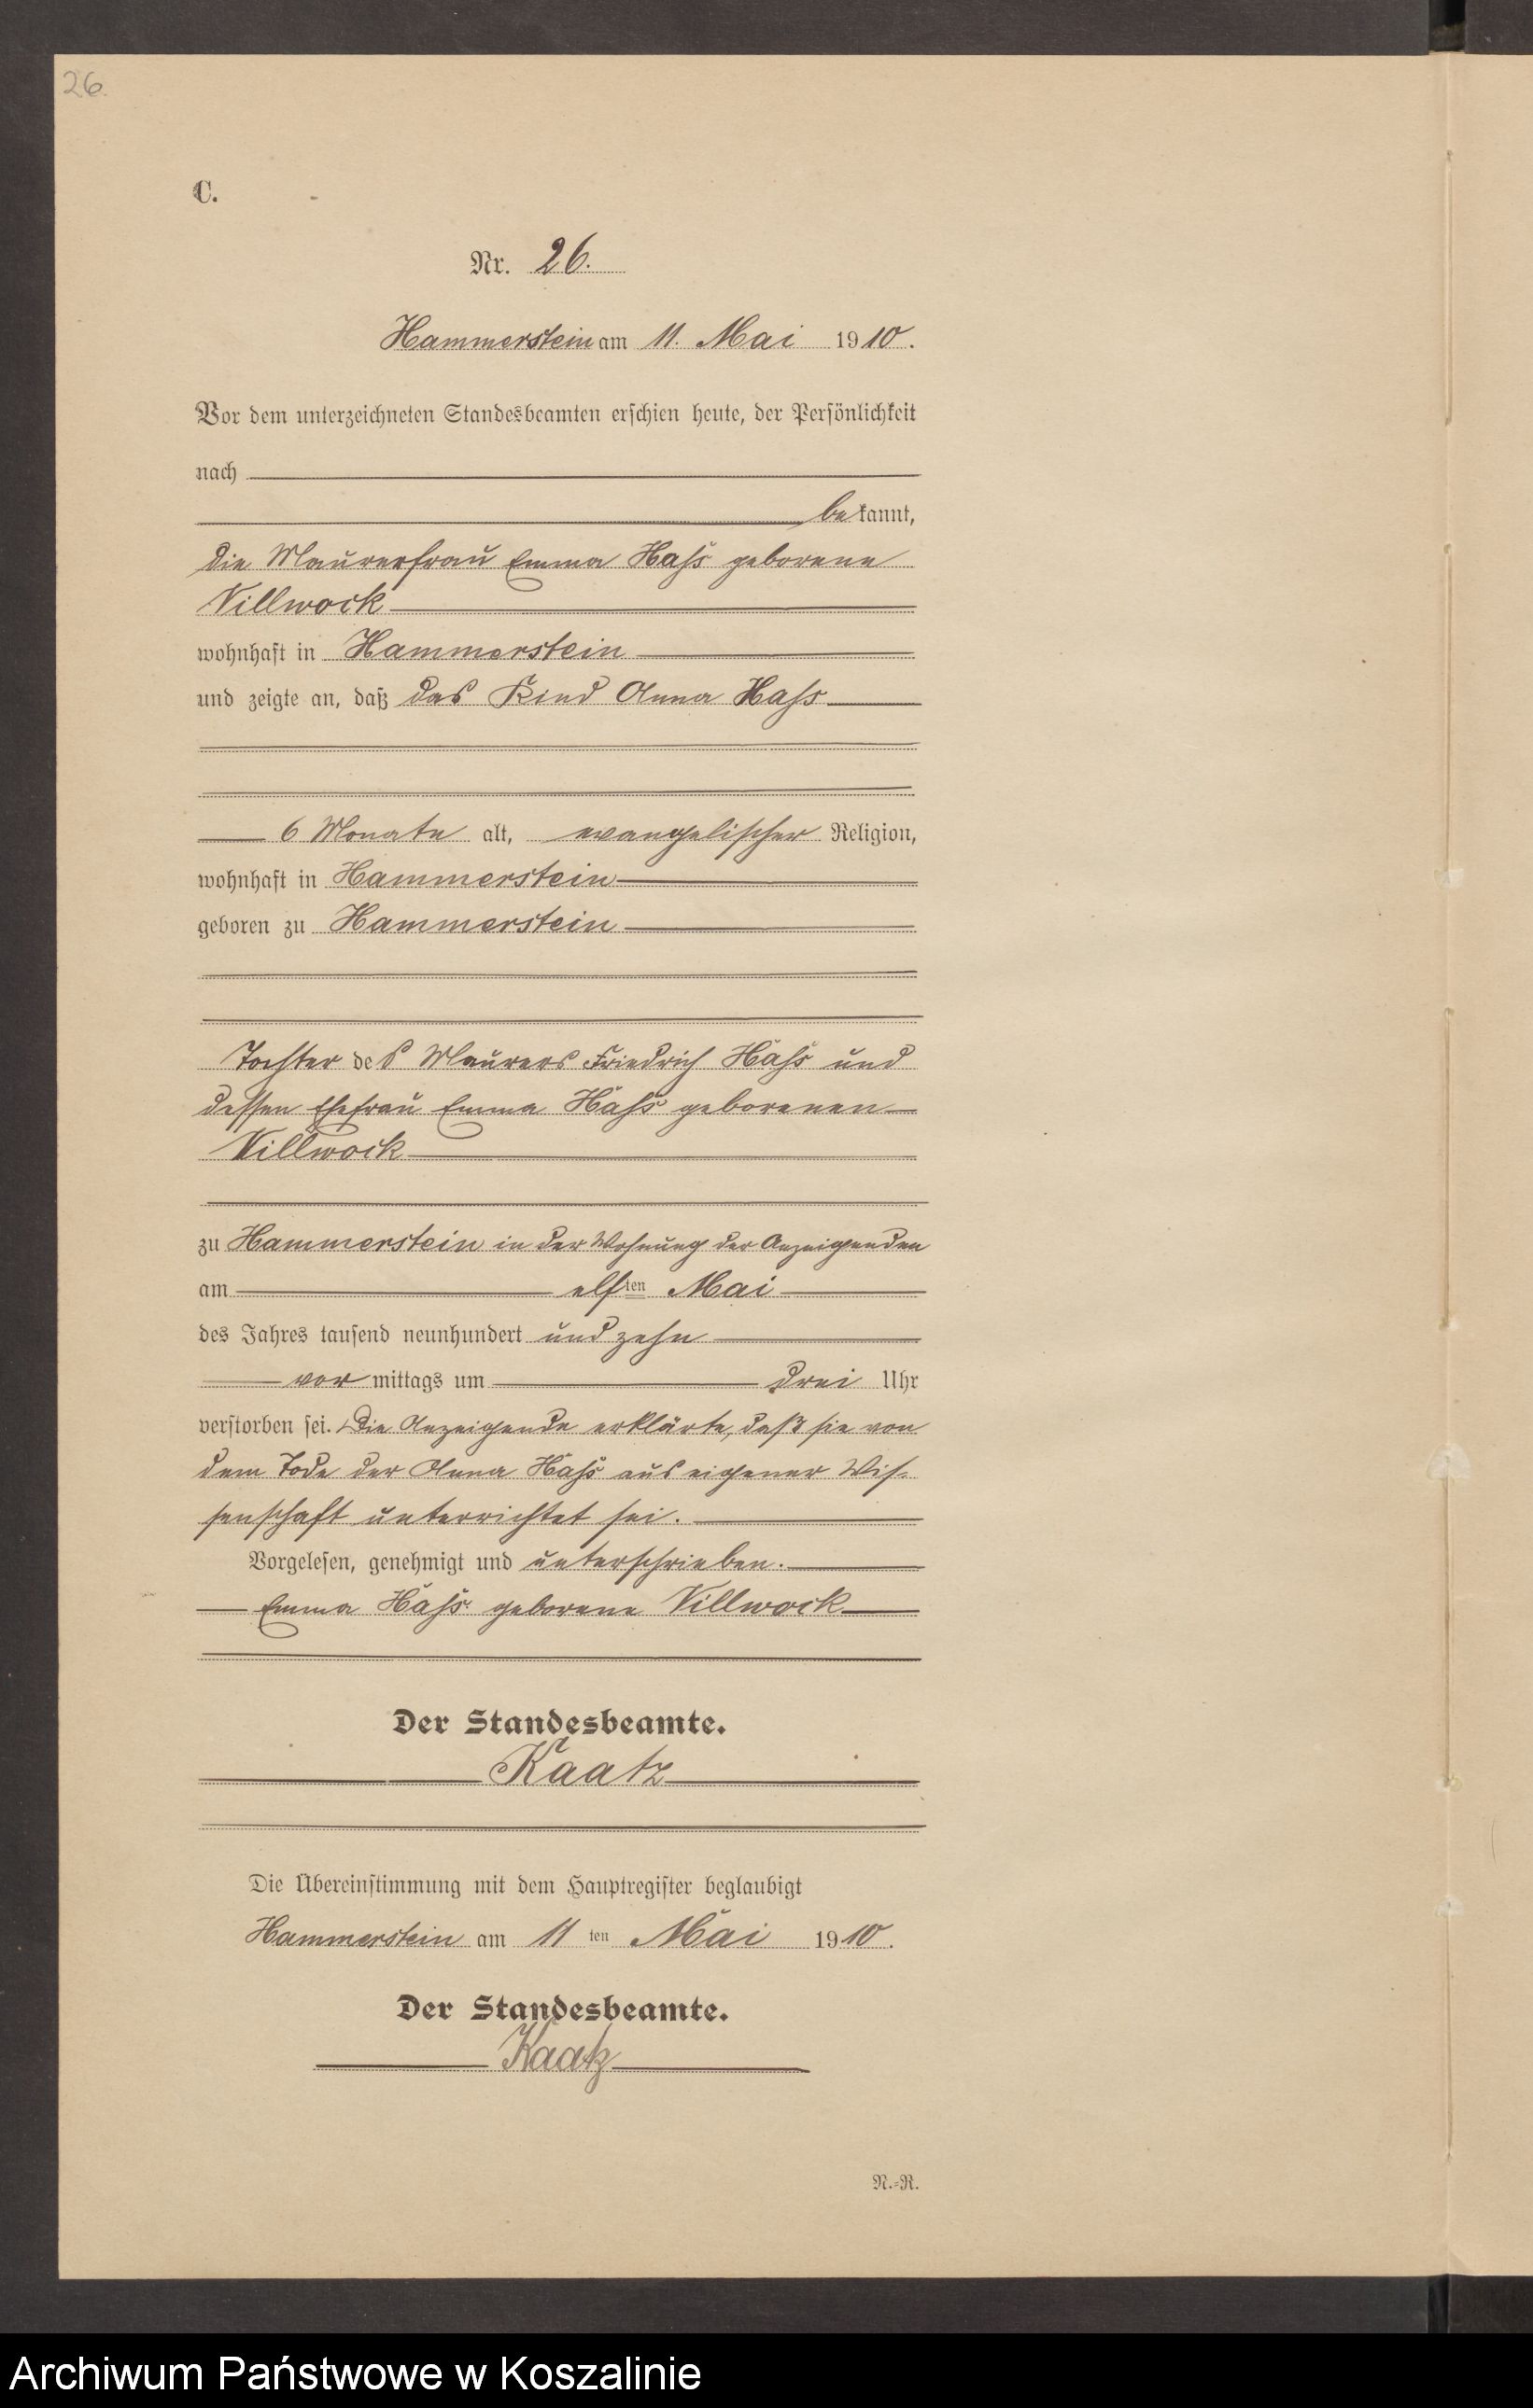 26.
C.
Nr. 26.
Hammerstein am 11. Mai 1910.
Vor dem unterzeichneten Standesbeamten erschien heute, der Persönlichkeit
nach
bekannt,
die Maurerfrau Emma Haß geborene
Villwock
wohnhaft in Hammerstein
und zeigte an, daß das Kind Anna Haß
6 Monate alt, evangelischer Religion,
wohnhaft in Hammerstein
geboren zu Hammerstein
Tochter des Maurers Friedrich Haß und
dessen Ehefrau Emma Haß geborenen
Villwock
zu Hammerstein in der Wohnung der Anzeigenden
am elften Mai
des Jahres tausend neunhundert und zehn
vor mittags um drei Uhr
verstorben sei. Die Anzeigende erklärte, daß sie von
dem Tode der Anna Haß aus eigener Wis-
senschaft unterrichtet sei.
Vorgelesen, genehmigt und unterschrieben.
Emma Haß geborene Villwock
Der Standesbeamte.
Kaatz
Die Übereinstimmung mit dem Hauptregister beglaubigt
Hammerstein am 11ten Mai 1910.
Der Standesbeamte.
Kaatz
N.-R.
Archiwum Państwowe w Koszalinie